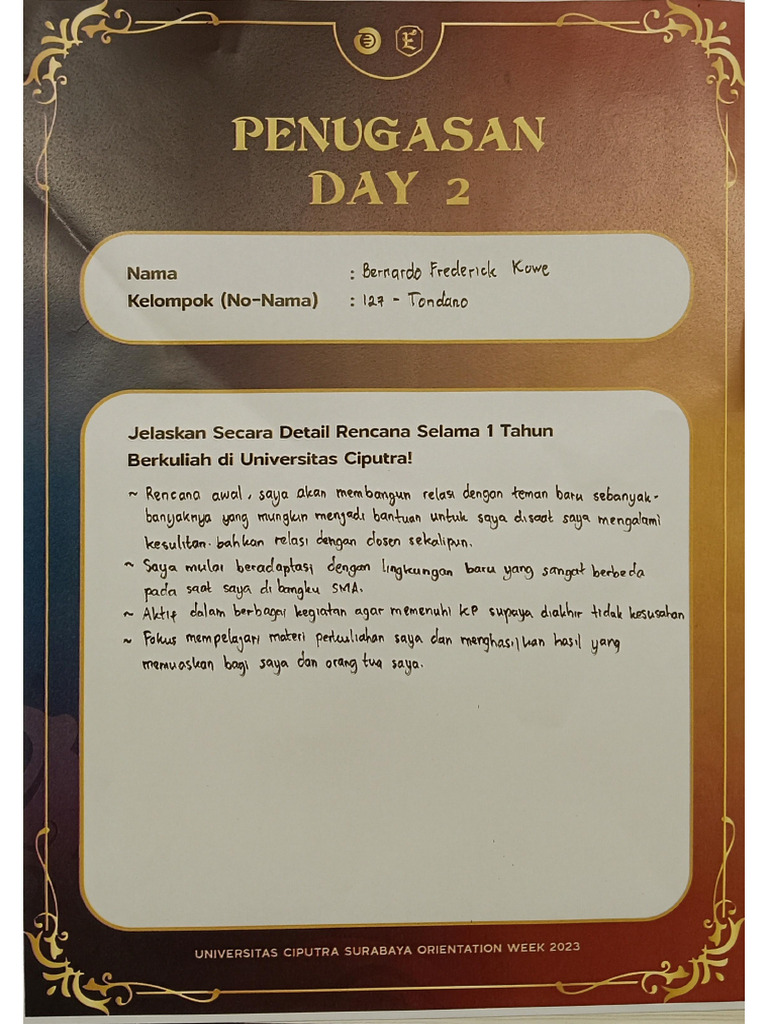 PENUGASAN
DAY 2
Nama : Bernardo Frederick Kowe
Kelompok (No-Nama) : 127 - Tondano
Jelaskan Secara Detail Rencana Selama 1 Tahun
Berkuliah di Universitas Ciputra!
~ Rencana awal, saya akan membangun relasi dengan teman baru sebanyak-
banyaknya yang mungkin menjadi bantuan untuk saya disaat saya mengalami
kesulitan. bahkan relasi dengan dosen sekalipun.
~ Saya mulai beradaptasi dengan lingkungan baru yang sangat berbeda
pada saat saya di bangku SMA.
~ Aktif dalam berbagai kegiatan agar memenuhi KP supaya diakhir tidak kesusahan
~ Fokus mempelajari materi perkuliahan saya dan menghasilkan hasil yang
memuaskan bagi saya dan orang tua saya.
UNIVERSITAS CIPUTRA SURABAYA ORIENTATION WEEK 2023